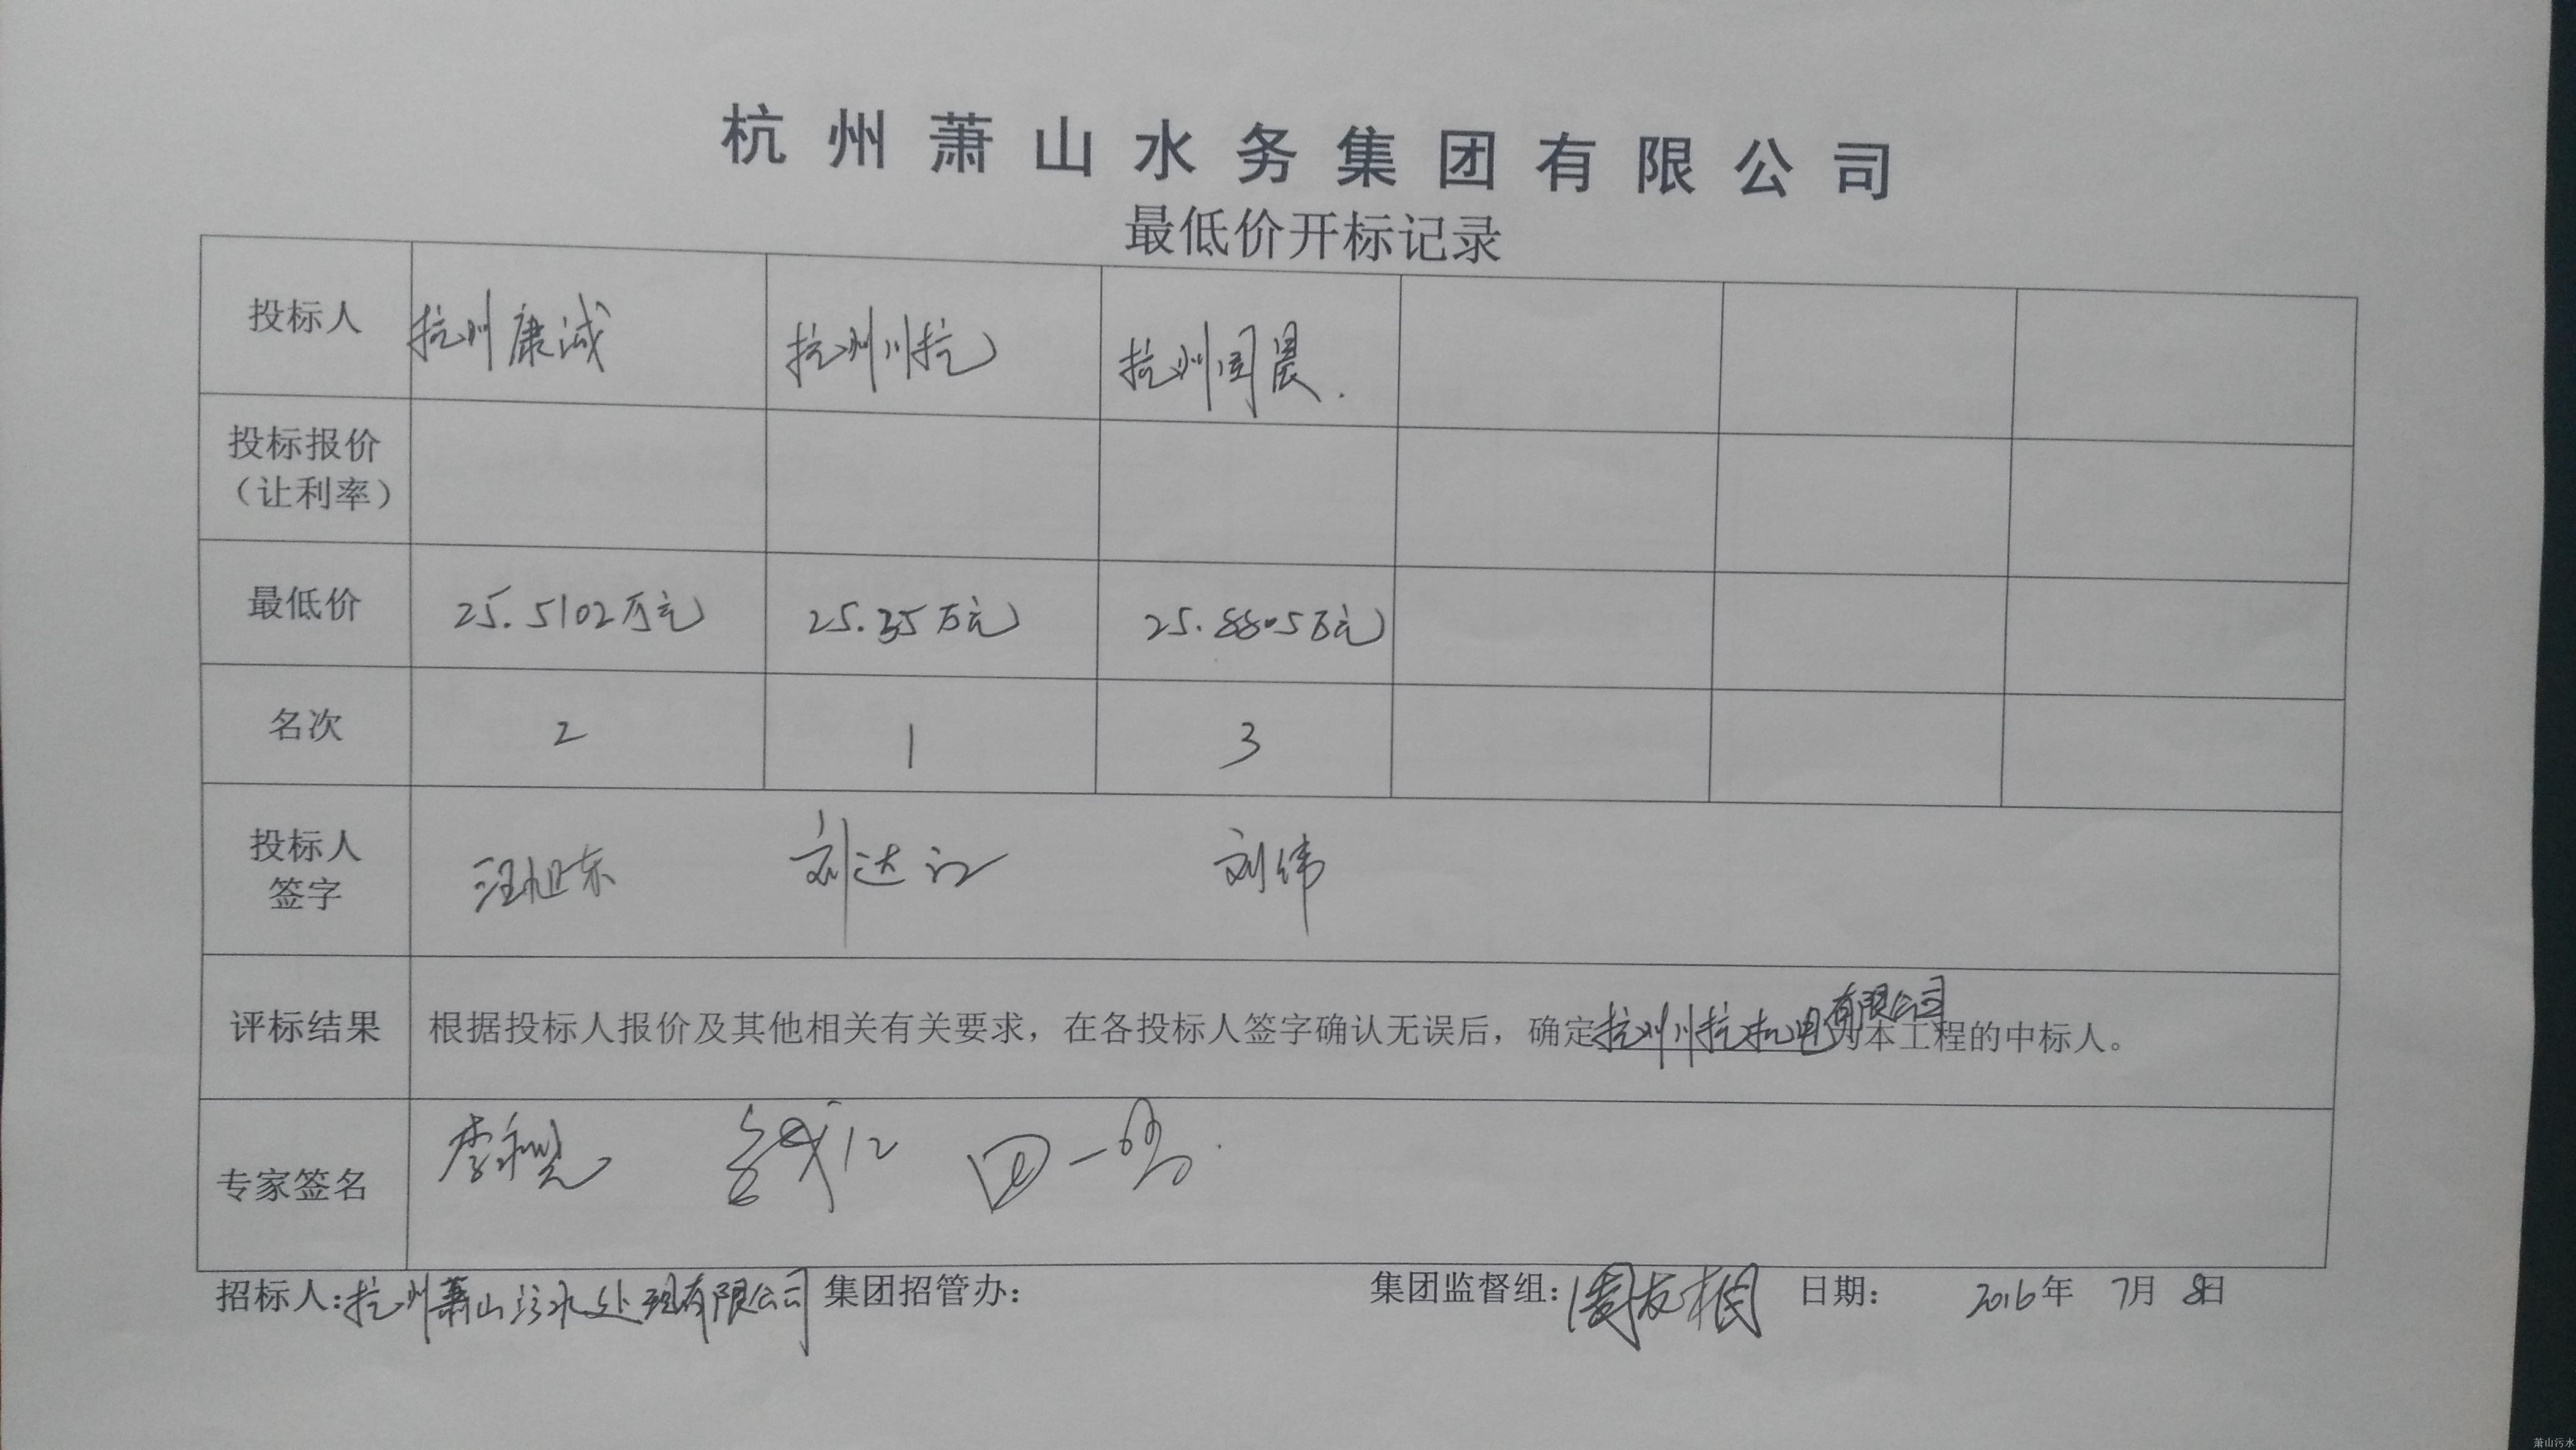 杭州萧山水务集团有限公司
最低价开标记录
投标人 杭州康诚 杭州川杭 杭州闰晨.
投标报价
（让利率）
最低价 25.5102万元 25.35万元 25.8805万元
名次 2 1 3
投标人
签字 汪旭东 刘达江 刘纬
评标结果 根据投标人报价及其他相关有关要求，在各投标人签字确认无误后，确定杭州川杭机电有限公司为本工程的中标人。
专家签名
招标人：杭州萧山污水处理有限公司 集团招管办： 集团监督组： 日期： 2016年 7月 8日
萧山污水